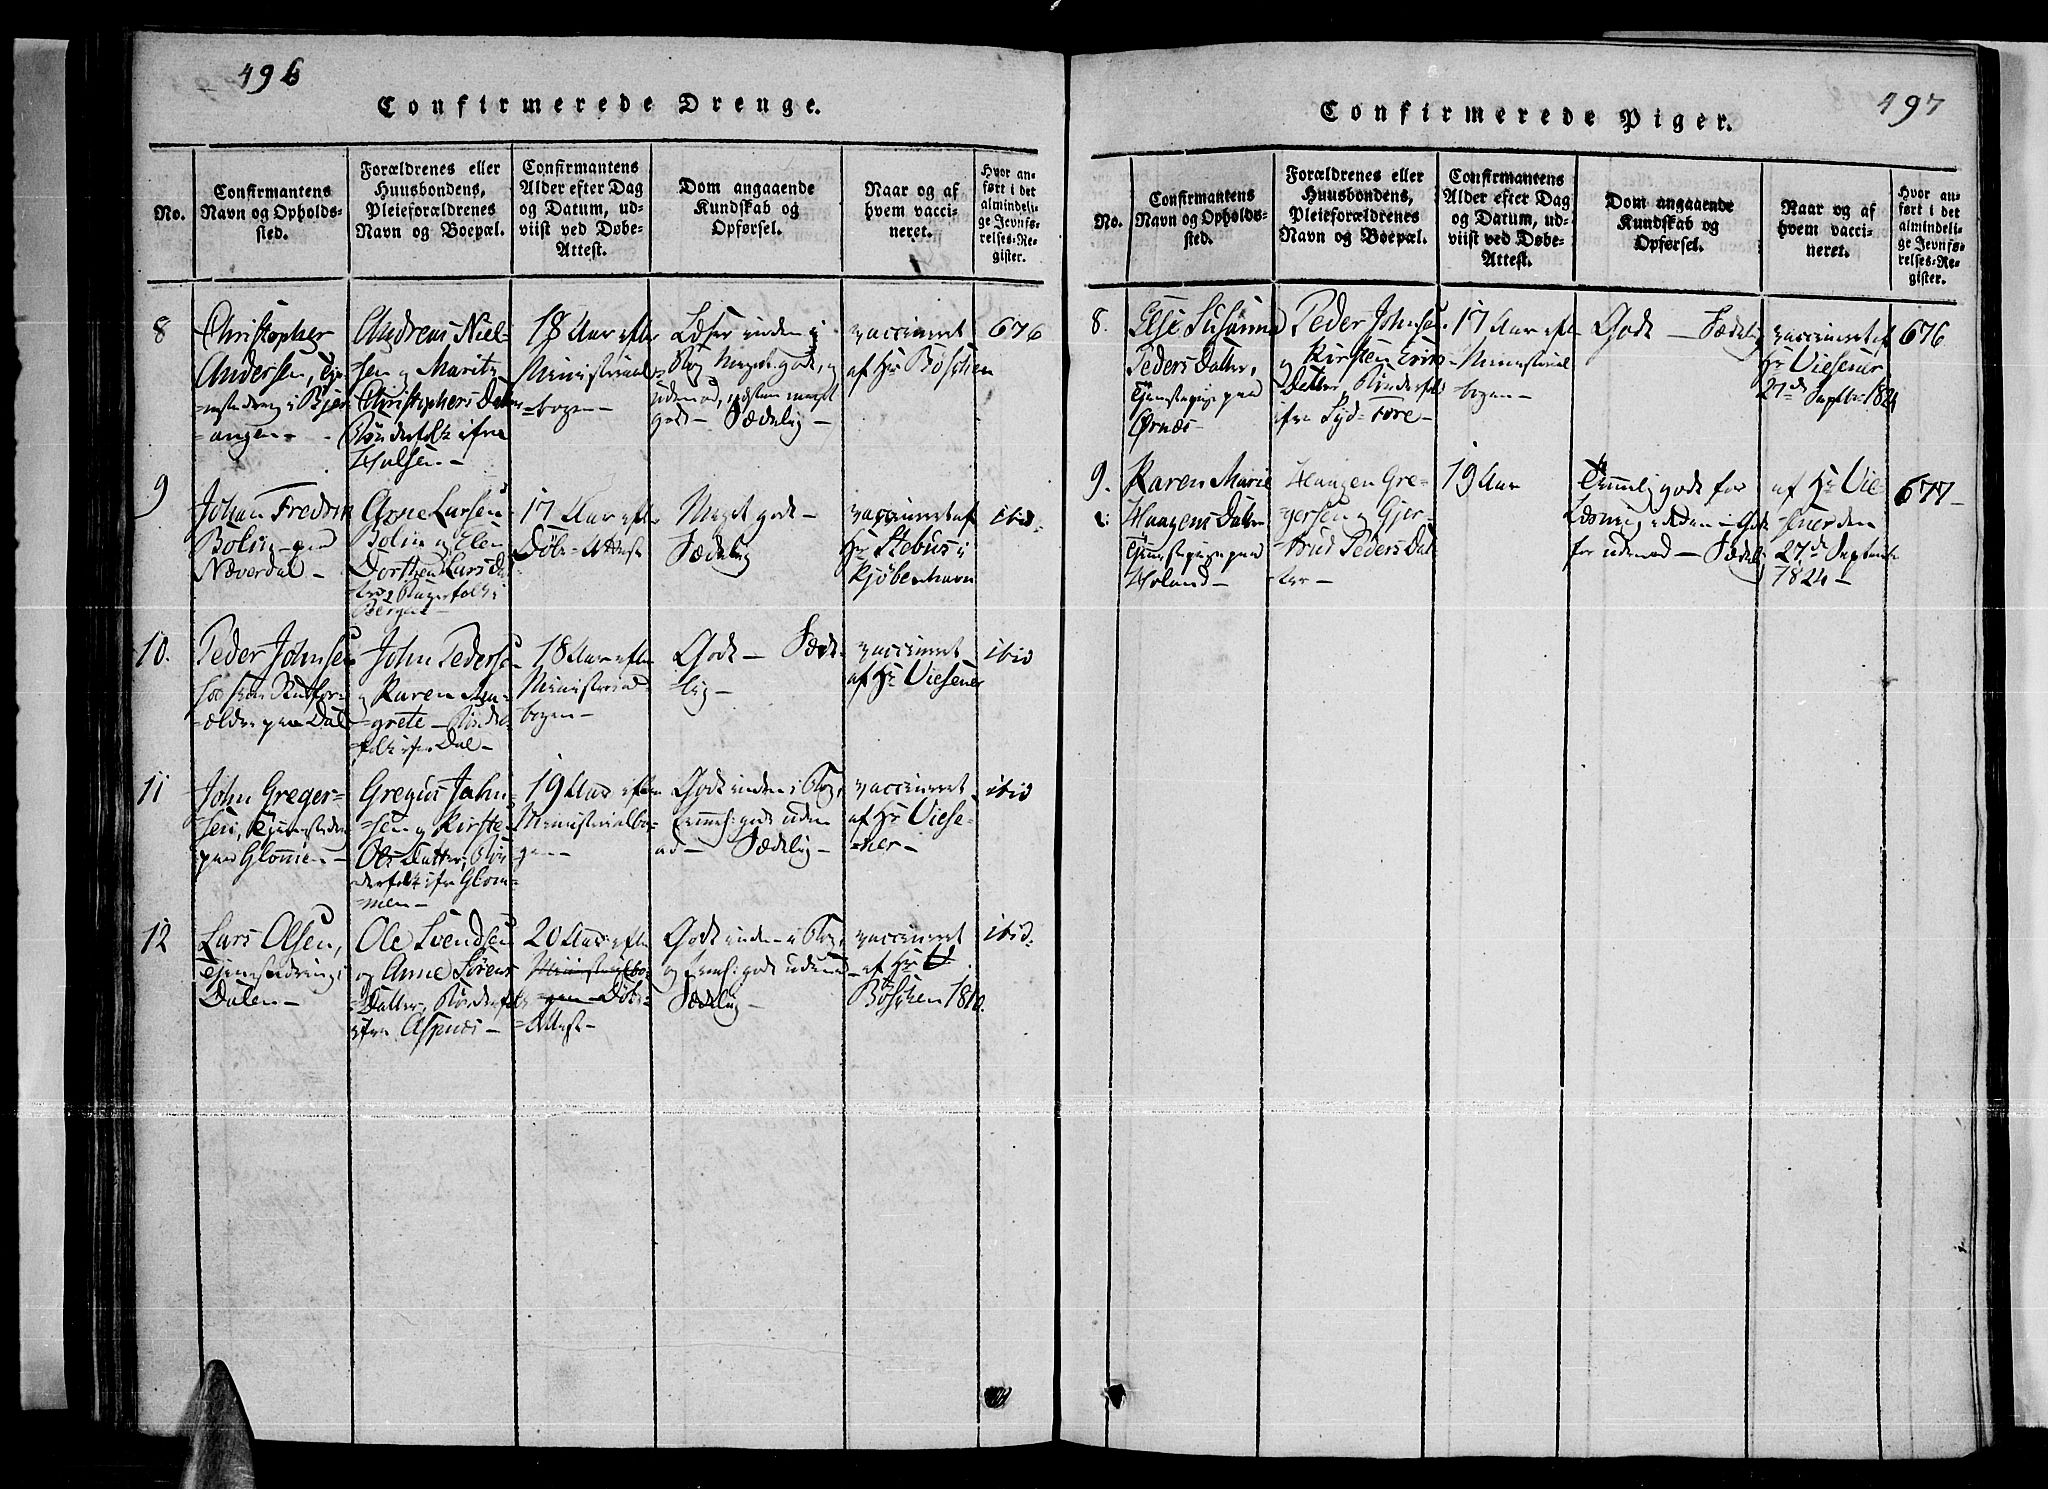 496
Confirmerede Drenge.
No.
Confirmantens
Navn og Opholds-
sted.
Forældrenes eller
Huusbondens,
Pleieforældrenes
Navn og Boepæl.
Confirmantens
Alder efter Dag
og Datum, ud-
viist ved Døbe-
Attest.
Dom angaaende
Kundskab og
Opførsel.
Naar og af
hvem vacci-
neret.
Hvor an-
ført i det
almindeli-
ge Jevnfø-
relses-Re-
gister.
8
Christopher
Andersen,
Andreas Niel-
sen og Marit
Christophers Datter
ifra
18 Aar efter
Ministerial
bogen -
Læser inden i
Bog Meget godt, og
udenad,
godt - Sædelig -
vaccineret
af Hr Bøschen
676
9
Johan Fredrik
Bolin paa
Næverdal -
Arne Larsen
Bolin og Elen
Dorthea Lars Dat-
Bergen -
17 Aar efter
Døbe-Attest
Meget godt -
Sædelig
vaccineret af
Hr Stebus i
Kjøbenhavn
ibid.
10.
Peder Johnsen
paa Dal
John Pedersen
og Karen Mar-
grete -
Dal -
18 Aar efter
Ministerial
bogen -
Godt - Sæde-
lig -
vaccineret
af Hr Viesener
ibid
11
John Greger-
sen,
paa Glommen -
Gregus John-
sen og Kirsten
Ols Datter,
ifra Glom-
men -
19 Aar efter
Ministerialbo-
gen -
Godt inden i Bog,
temel: godt uden
ad - Sædelig -
vaccineret
af Hr Viese-
ner -
ibid
12
Lars Olsen,
Tjenestedreng i
Dalen -
Ole Svendsen
og Anne Sørens
Datter,
ifra Aspnes -
20 Aar efter
Ministerialbo-
gen - Døbe-
Attest -
Godt inden i Bog,
og temel: godt udenad
Sædelig -
vaccineret
af Hr
Bøschen 1810.
ibid.
497
Confirmerede Piger.
No.
Confirmantens
Navn og Opholds-
sted.
Forældrenes eller
Huusbondens,
Pleieforældrenes
Navn og Boepæl.
Confirmantens
Alder efter Dag
og Datum, ud-
viist ved Døbe-
Attest.
Dom angaaende
Kundskab og
Opførsel.
Naar og af
hvem vacci-
neret.
Hvor an-
ført i det
almindeli-
ge Jevnfø-
relses-Re-
gister.
8.
Else Susanna
Peders Datter,
Tjenestepige paa
Ørnæs -
Peder Johnsen
og Kirsten Eriks
Datter,
ifra Syd-Fore -
17 Aar efter
Ministerial
bogen -
Godt - Sædelig
vaccineret af
Hr Viesener
27de Septbr 1824
676
9.
Karen Marie
Haagens Datter
Tjenestepige paa
Holand -
Haagen Gre-
gersen og Gjer-
trud Peders Dat-
ter -
19 Aar
Temmelig godt for
Læsning
for udenad - Sædelig
af Hr Vie-
sener den
27de Septembr
1824 -
677 -